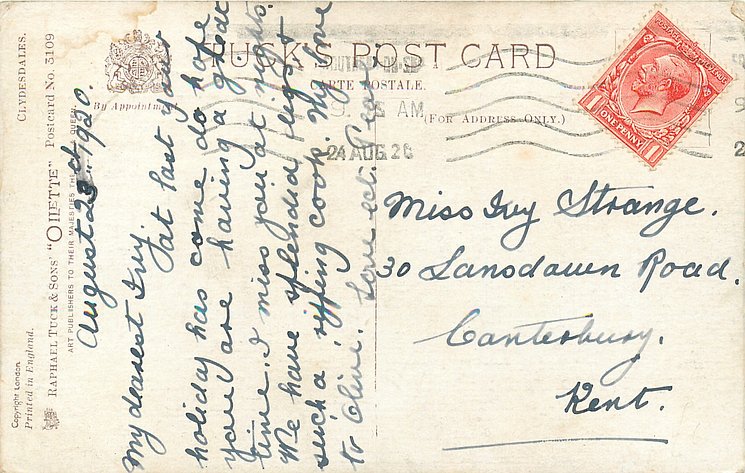 CLYDESDALES.
RAPHAEL TUCK & SONS' "OILETTE" Postcard No. 3109
ART PUBLISHERS TO THEIR MAJESTIES THE QUEEN
Copyright London.
Printed in England.
By Appointment
TUCK'S POST CARD
CARTE POSTALE.
(FOR ADDRESS ONLY.)
AM
24 AUG 20
ONE PENNY
August 23rd 1920.
My dearest Ivy.
at last your
holiday has come do hope
you are having a good
time. I miss you at nights.
We have splendid digs &
such a ripping cook. My love
to Olive. Love ect.
Miss Ivy Strange.
30 Lansdown Road.
Canterbury.
Kent.